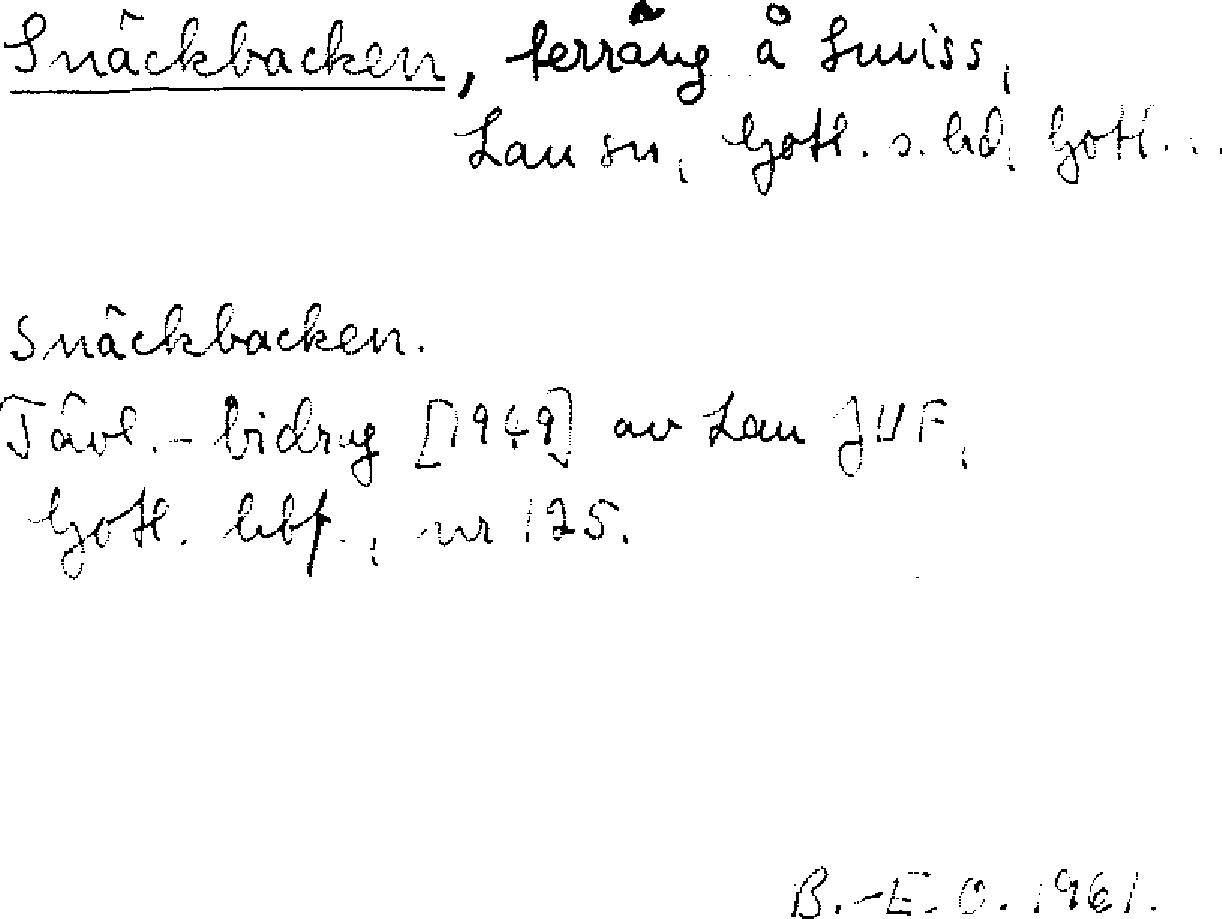 Snäckbacken, terräng å Smiss,
Lau sn, Gotl. s. hd, Gotl.
Snäckbacken.
Tävl.-bidrag [1949] av Lau JUF,
Gotl. hbf., nr 125.
B.-E. O. 1961.